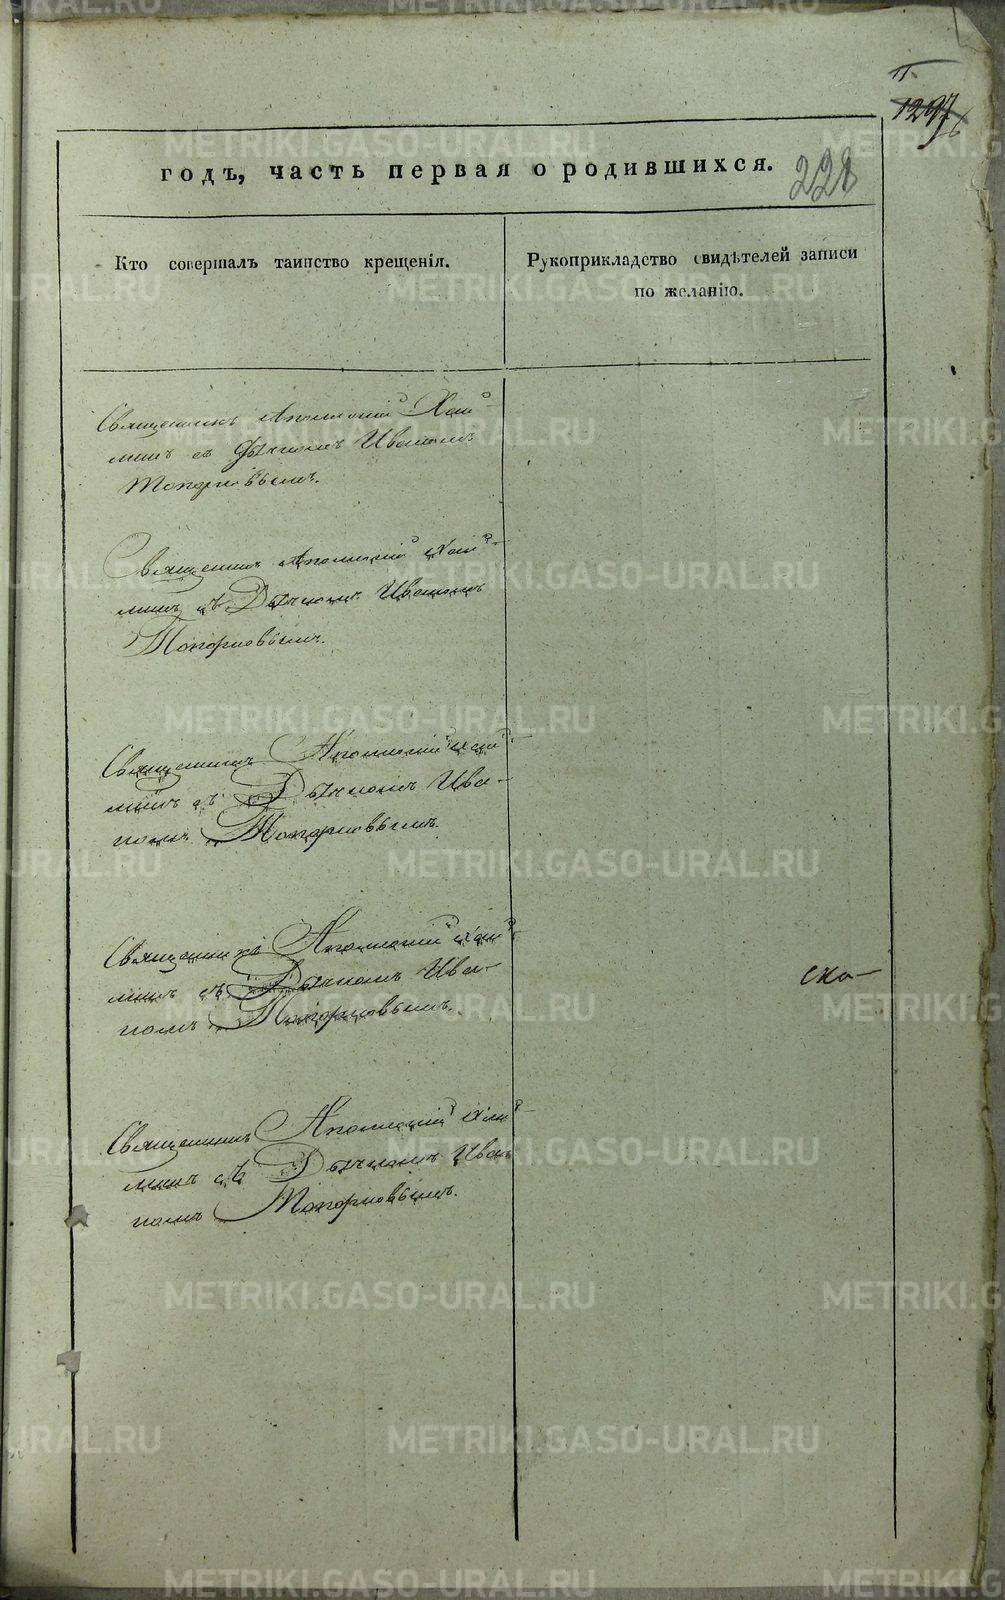 11.
1297
годъ, часть первая о родившихся.
228
Кто совершалъ таинство крещенія.
Рукоприкладство свидѣтелей записи
по желанію.
Священникъ Аполлоній Хлы-
съ Дьячкомъ Иваномъ
Топорковымъ.
Священникъ Аполлоній
съ Дьячкомъ Иваномъ
Топорковымъ.
Священникъ Аполлоній
съ Дьячкомъ Ива-
номъ Топорковымъ.
Священникъ Аполлоній
съ Дьячкомъ Ива-
номъ Топорковымъ.
ско-
Священникъ Аполлоній
съ Дьячкомъ Ива-
номъ Топорковымъ.
METRIKI.GASO-URAL.RU